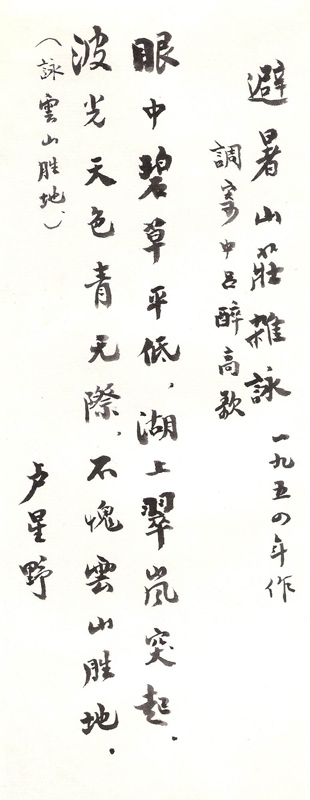 避暑山莊雜詠 一九五四年作
調寄中呂醉高歌
眼中碧草平低，湖上翠嵐突起。
波光天色青无際，不愧雲山胜地。
（詠雲山胜地）
卢星野